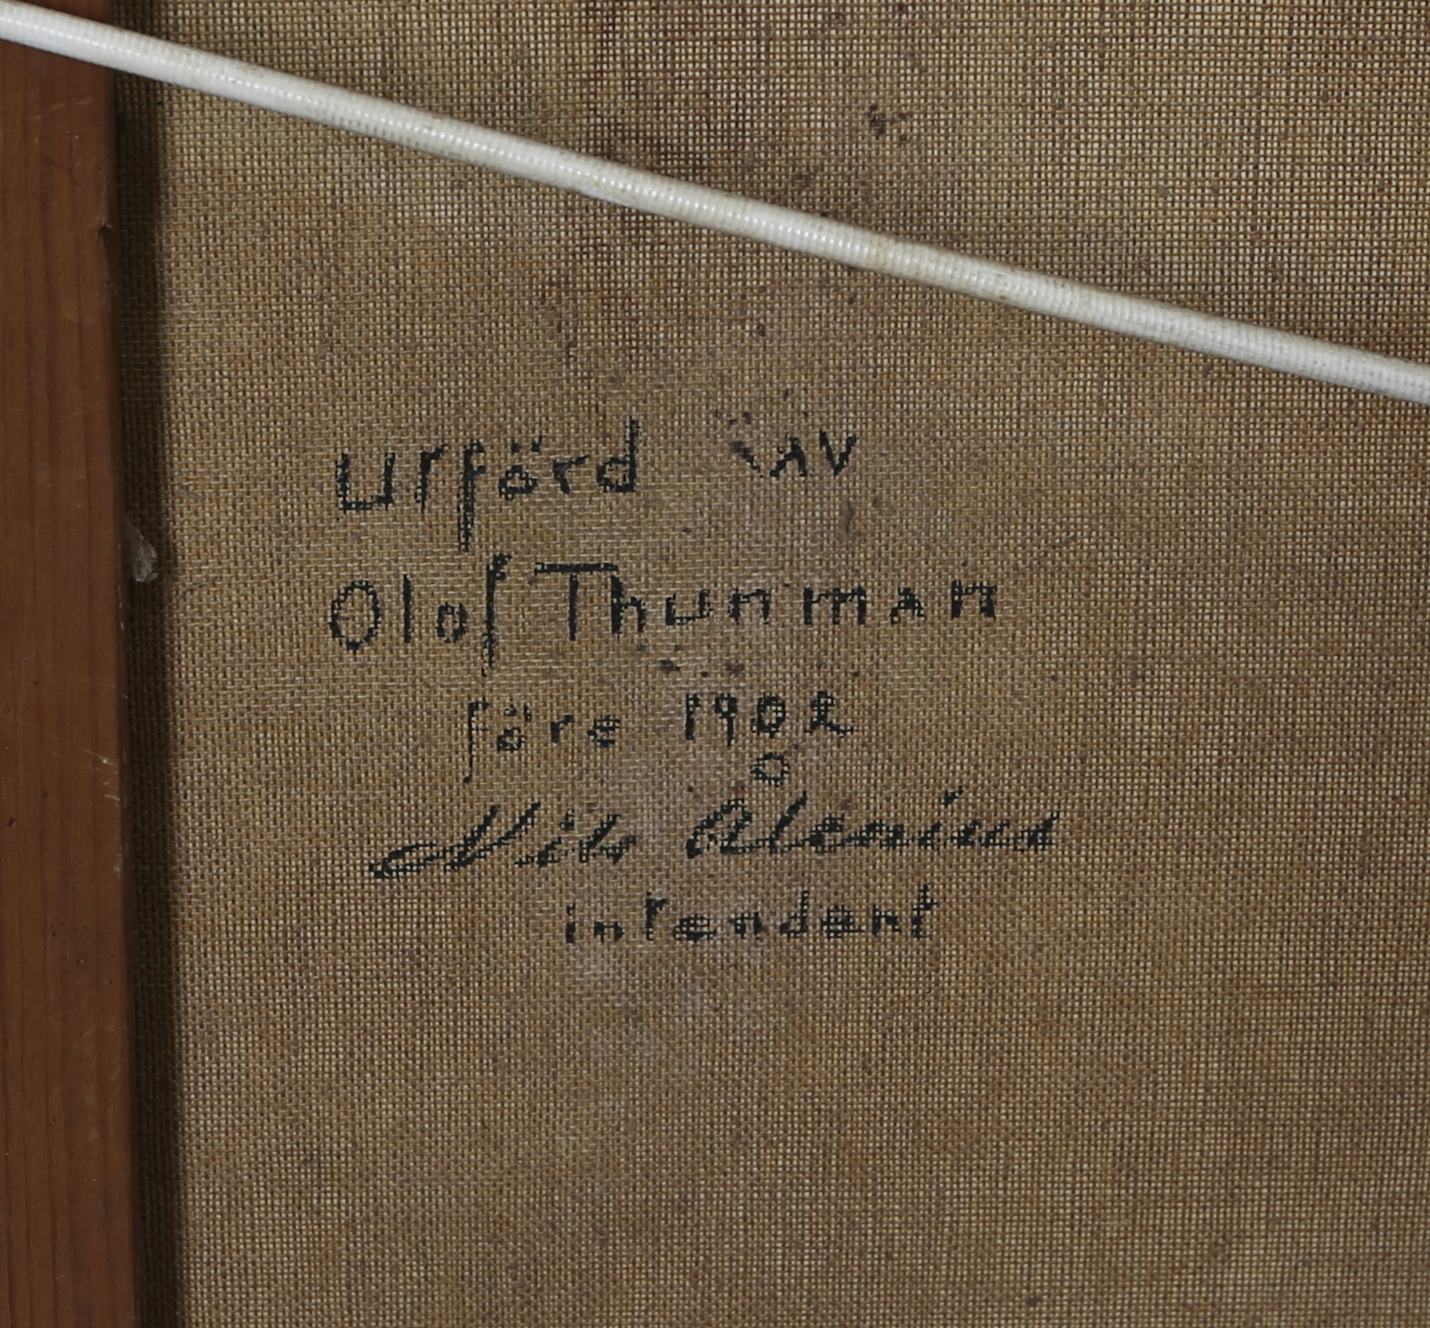 Urförd AV
Olof Thunman
före 1902
Nils Ålenius
intendent